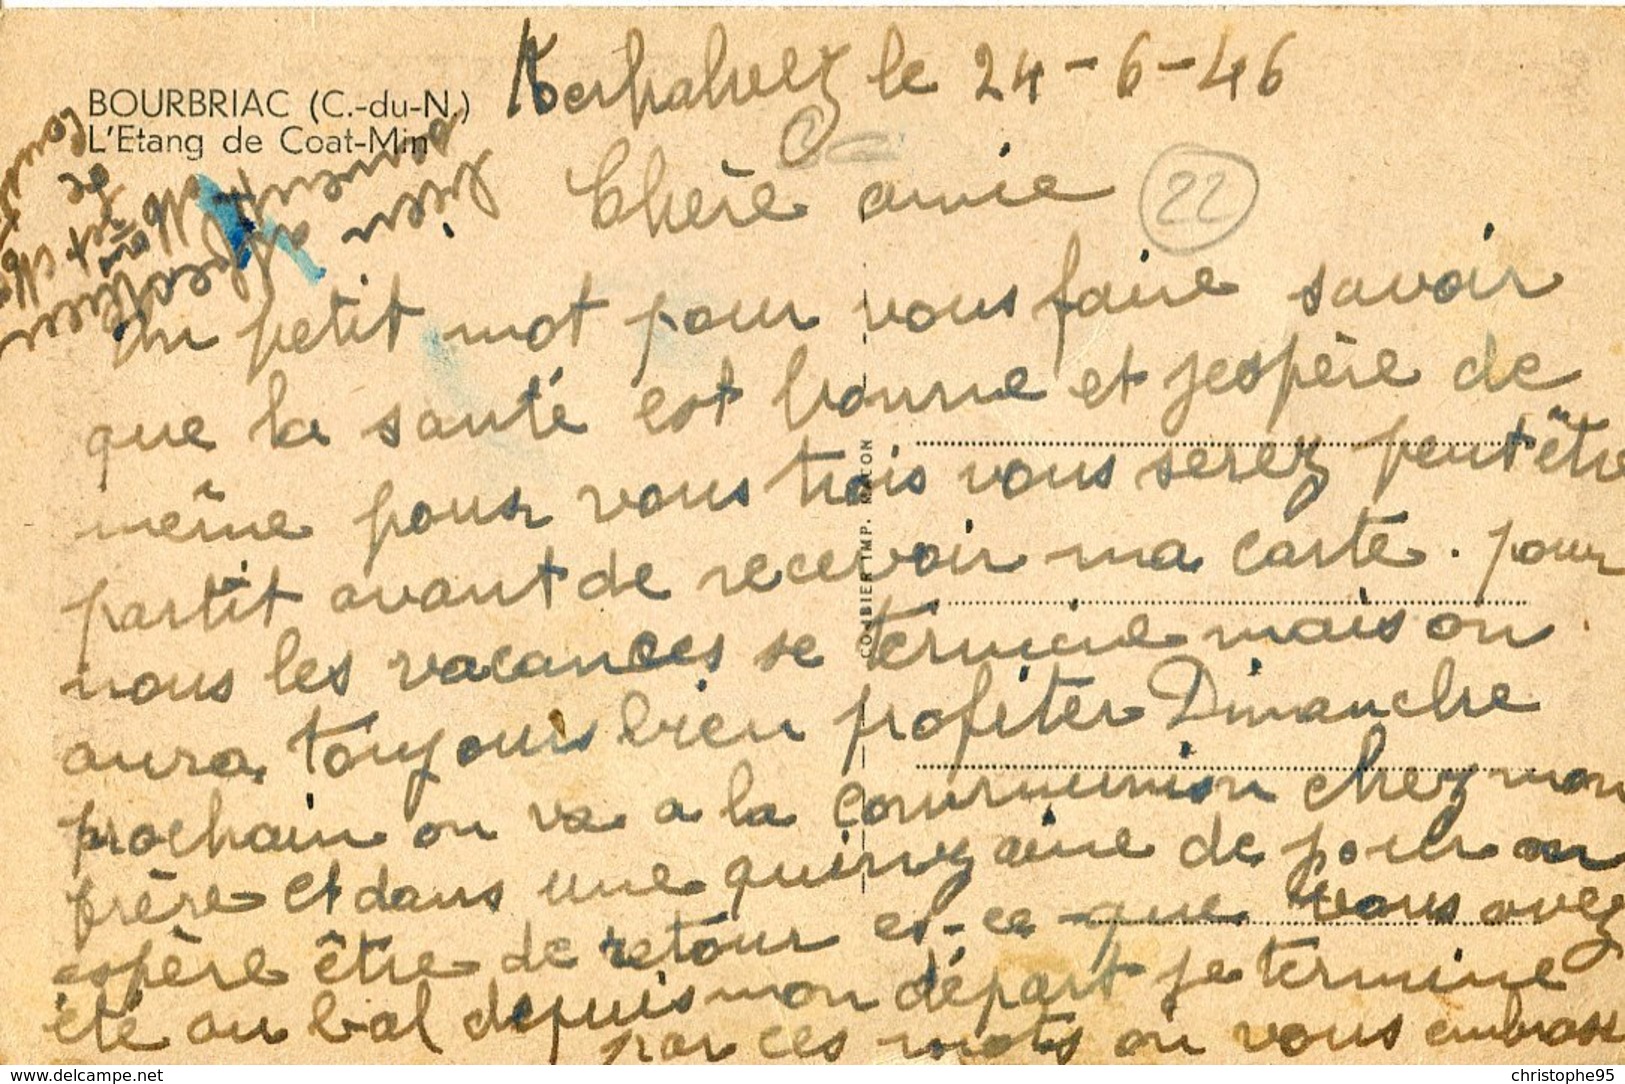 BOURBRIAC (C.-du-N.)
L'Etang de Coat-Min
le 24-6-46
Chère amie
22
Un petit mot pour vous faire savoir
que la santé est bonne et jespère de
même pour vous trois vous serez peut être
partit avant de recevoir ma carte. pour
nous les vacances se termine mais on
aura toujours bien profiter Dimanche
prochain on va a la communion chez mon
frère et dans une quinzaine de jour on
espère être de retour es-ce que vous avez
été au bal depuis mon départ je termine
par ces mots on vous embrasse
COMBIER IMP. MACON
christophe95